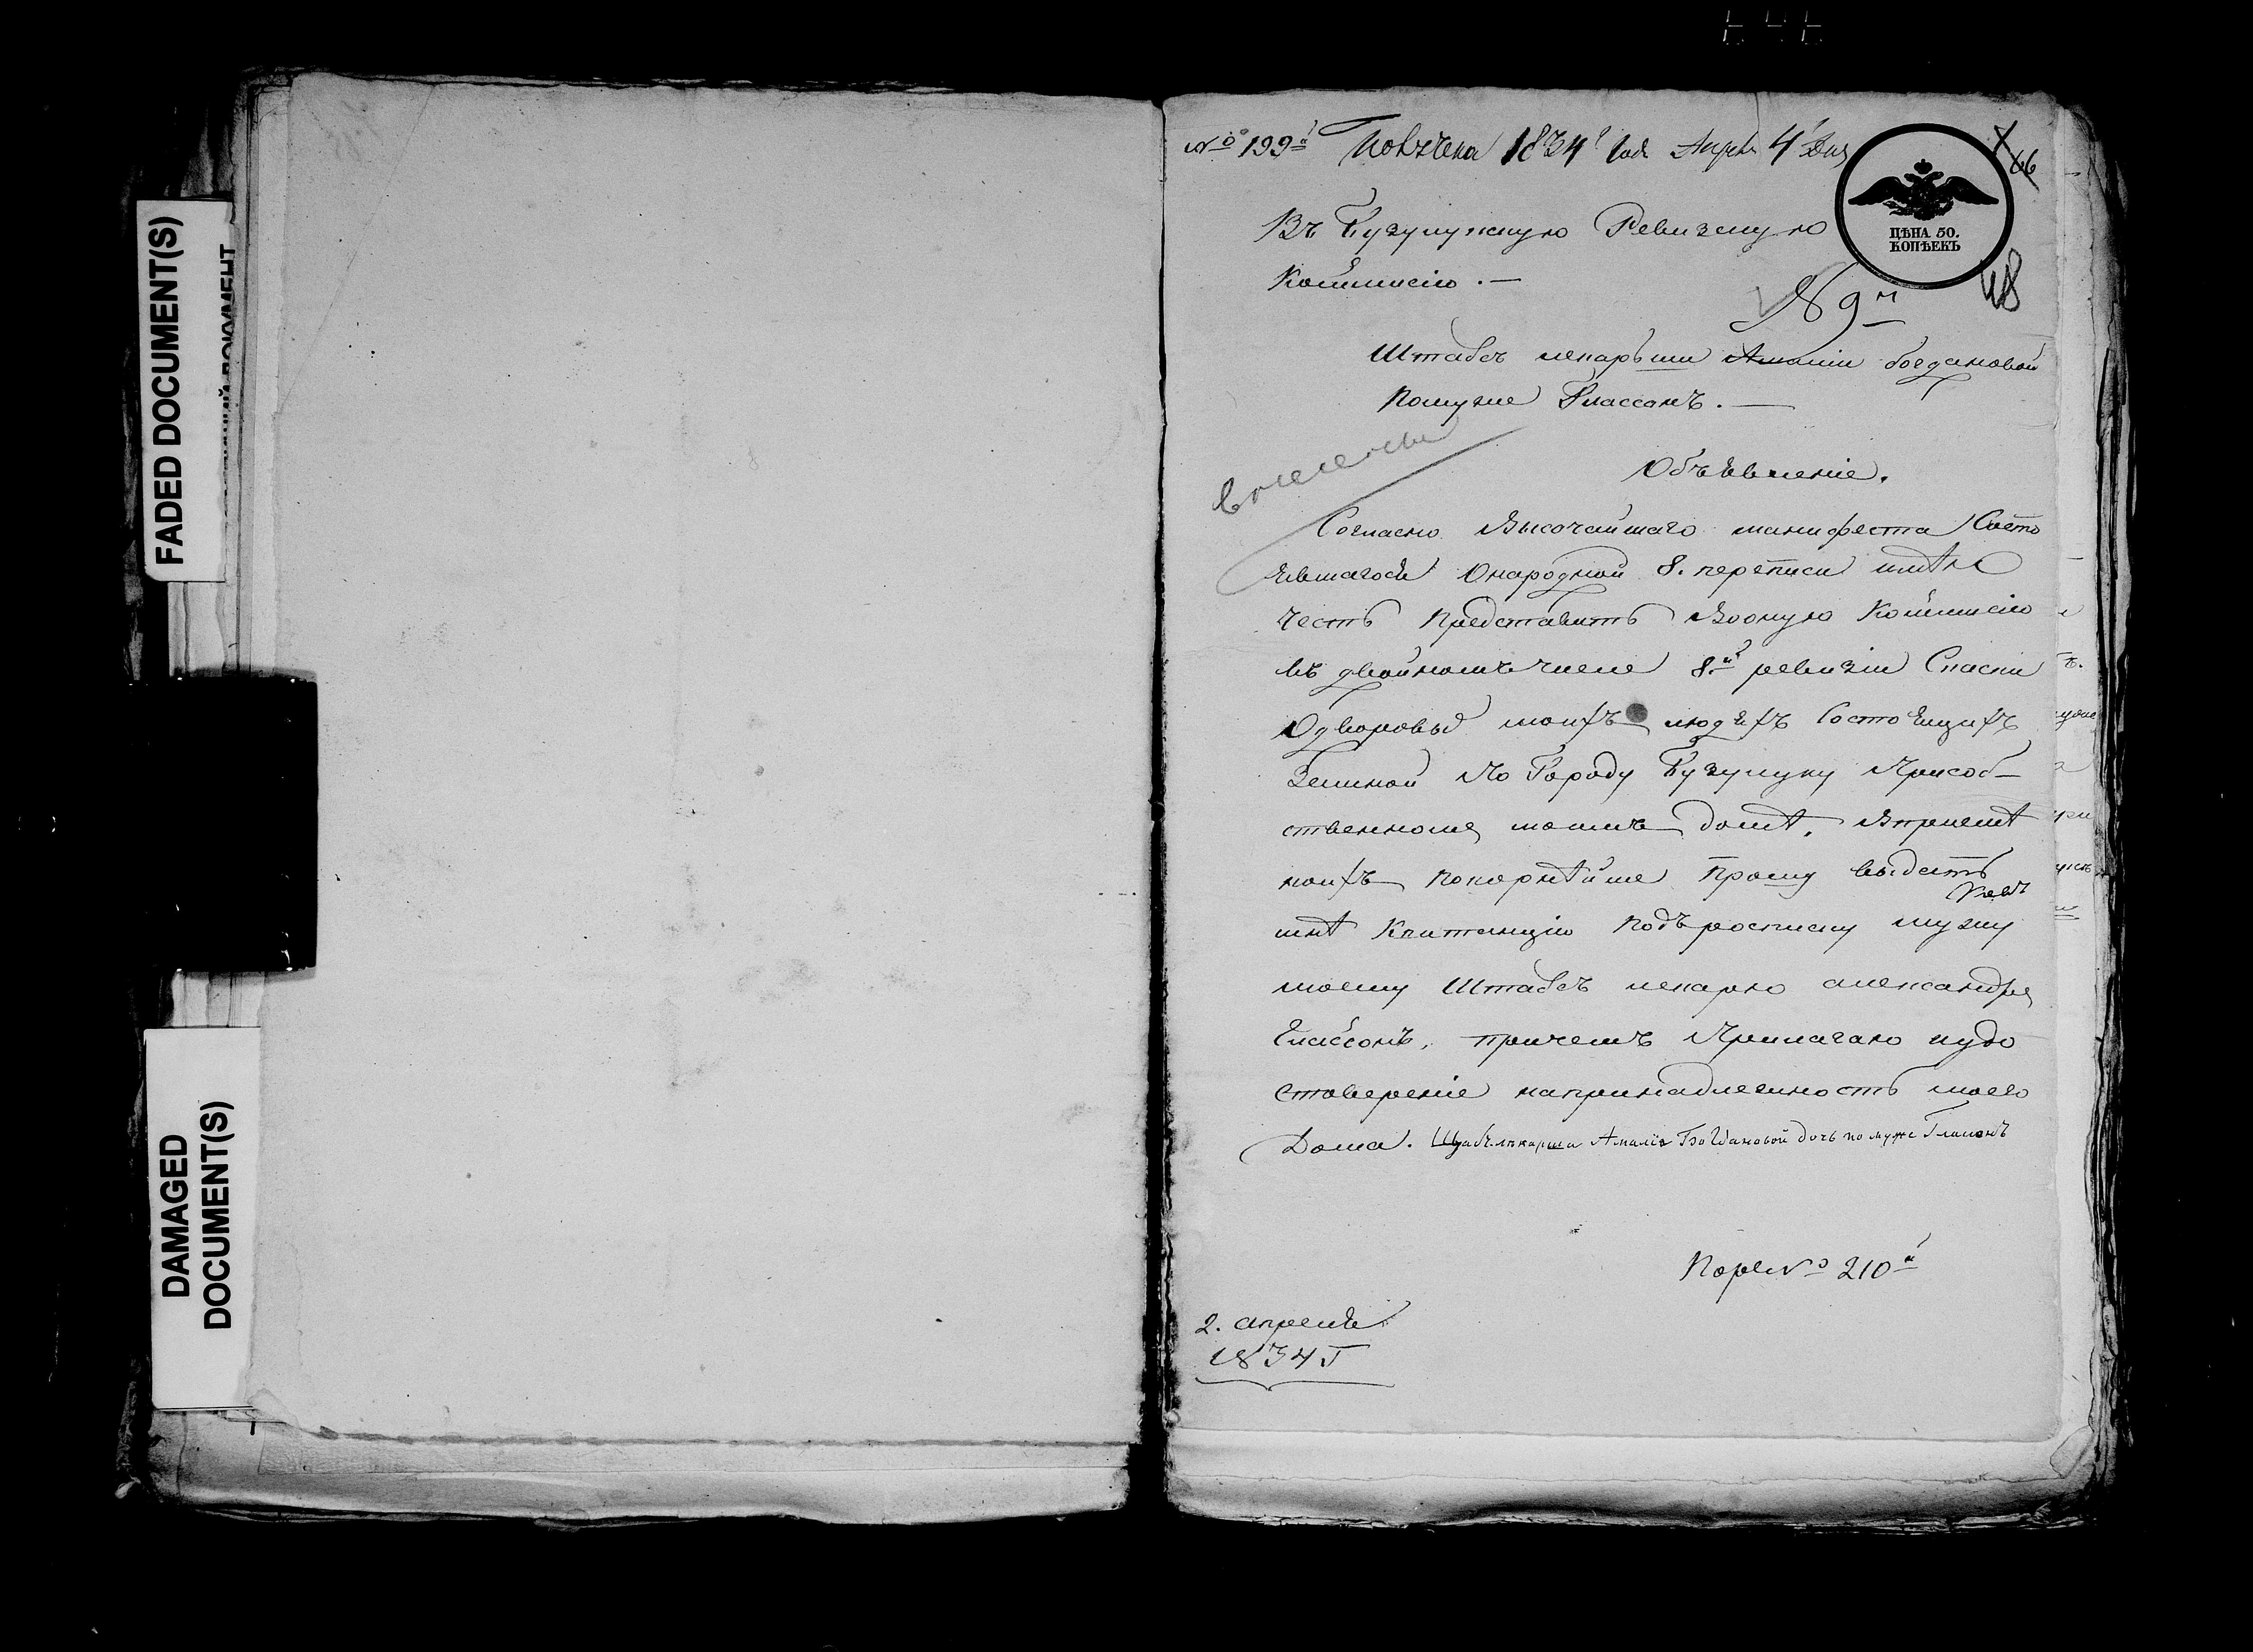 FADED DOCUMENT(S)
DAMAGED
DOCUMENT(S)
№ 199й 1834 года Апреля 4 дня
66
ЦѢНА 50.
КОПѢЕКЪ
Въ Бузулужскую Ревизскую
Коммисію.—
№ 9й
48
Штабсъ лекарьши Амаліи богдановой
помуже Глассонъ.—
Объявленіе.
Согласно Высочайшаго манифеста Состо
явшагося Онародной 8. переписи имѣю
честь Представить Вооную Коммисію
въ двойномъ числе 8й ревизіи Сказки
Одворовыхъ моихъ людяхъ Состоящихъ
Замной по Городу Бузулуку Присоб-
ственноме, моемъ доме,
коихъ покорнѣйше Прошу выдать
мнѣ Квитанцію подъ росписку мужу
моему Штабсъ лекарю александру
Глассонъ, причемъ Прилагаю иудо
стоверение напринадлежность моего
Дома. Штабъ лѣкарша Амалія Богдановой дочь по мужѣ Глассонъ
№ 210й
2. апреля
1834 Г